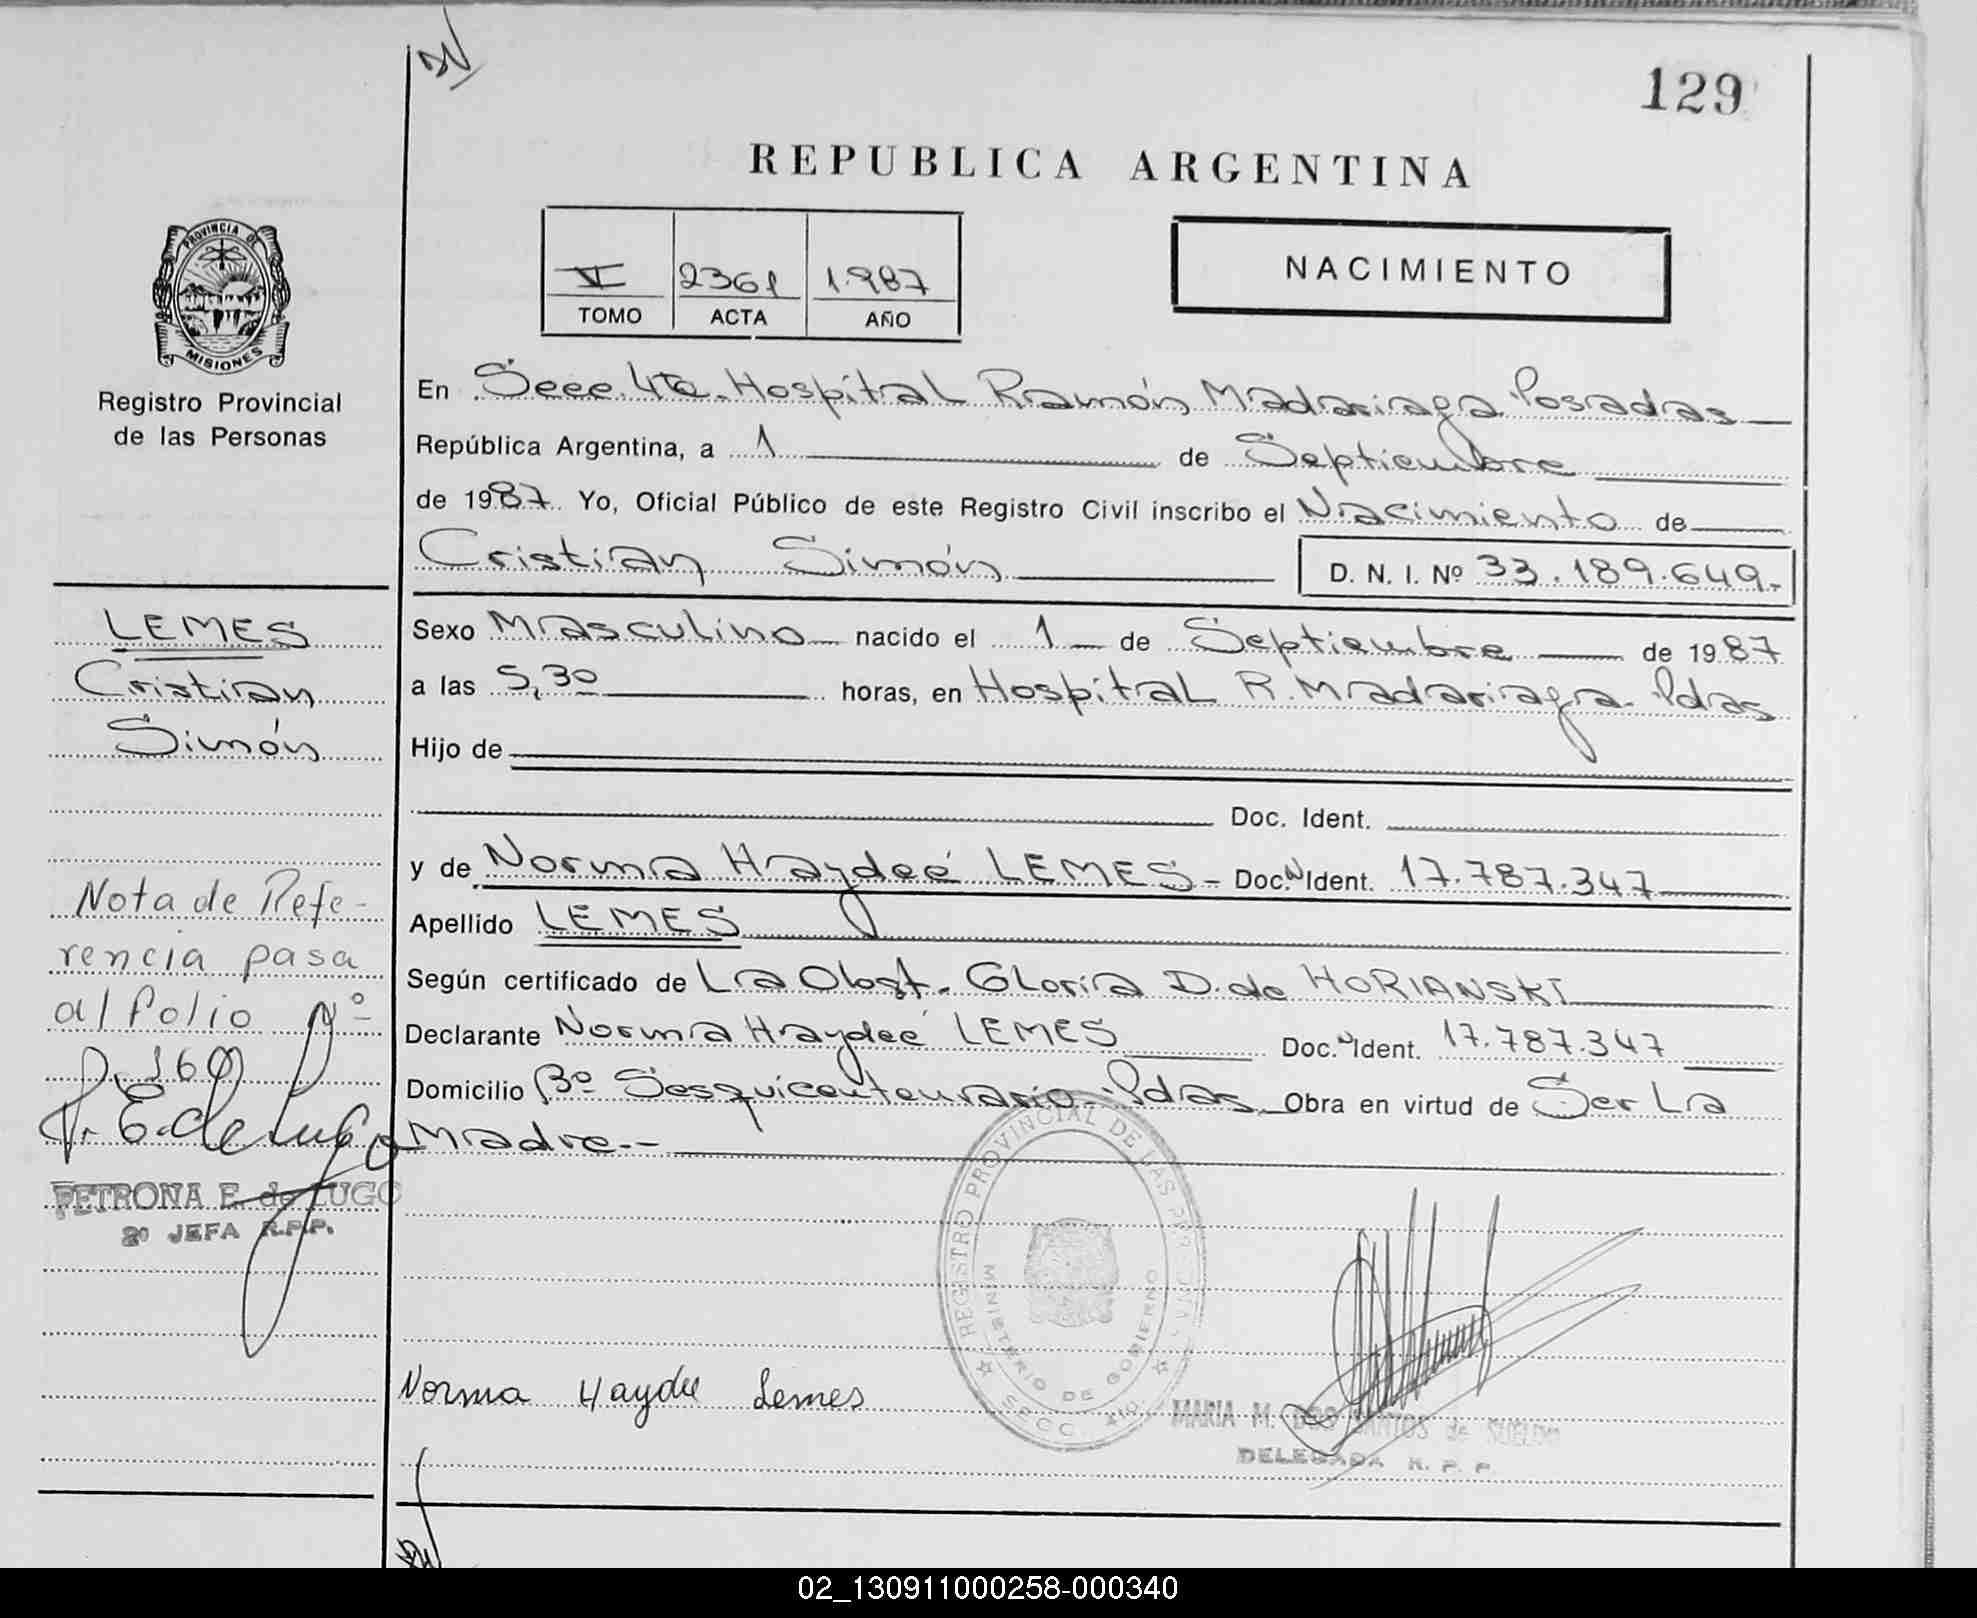 129
REPUBLICA ARGENTINA
PROVINCIA DE
MISIONES
Registro Provincial
de las Personas
VI 2361 1.987
TOMO ACTA AÑO
NACIMIENTO
En Secc. 4ta. Hospital Ramón Madariaga Posadas
República Argentina, a 1 de Septiembre
de 1987. Yo, Oficial Público de este Registro Civil inscribo el Nacimiento de
Cristian Simón D. N. I. Nº 33.189.649.-
Sexo Masculino nacido el 1 de Septiembre de 1987
a las 5,30 horas, en Hospital R. Madariaga. Pdas
Hijo de
Doc. Ident.
y de Norma Haydeé LEMES - Doc. N Ident. 17.787.347
Apellido LEMES
Según certificado de La Obst. Gloria D. de HORIANSKI
Declarante Norma Haydeé LEMES Doc. N Ident. 17.787.347
Domicilio Bº Sesquicentenario - Pdas Obra en virtud de Ser La
Madre.--
LEMES
Cristian
Simón
Nota de Refe-
rencia pasa
al folio Nº
160
P. E. de Lugo
PETRONA E. de LUGO
2º JEFA R.P.P.
REGISTRO PROVINCIAL DE LAS PERSONAS
MINISTERIO DE GOBIERNO
SECC. 4ta
Norma Haydeé Lemes
MARIA M. DOS SANTOS de SUELDO
DELEGADA R. P. P.
02_130911000258-000340